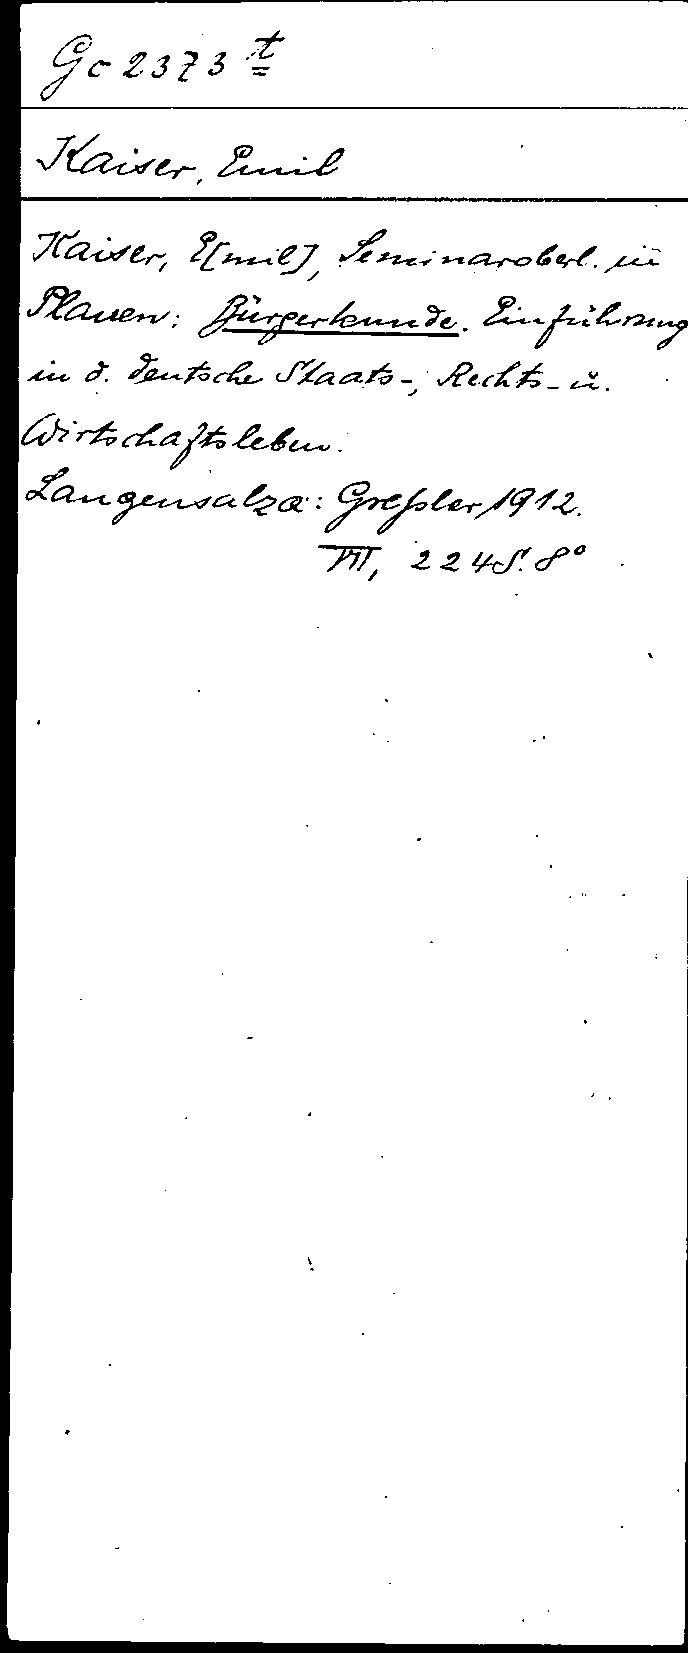 Gc 2373 t
Kaiser, Emil
Kaiser, E[mil], Seminaroberl. in
Plauen: Bürgerkunde. Einführung
in d. deutsche Staats-, Rechts- u.
Wirtschaftsleben.
Langensalza: Greßler 1912.
VII, 224 S. 8°